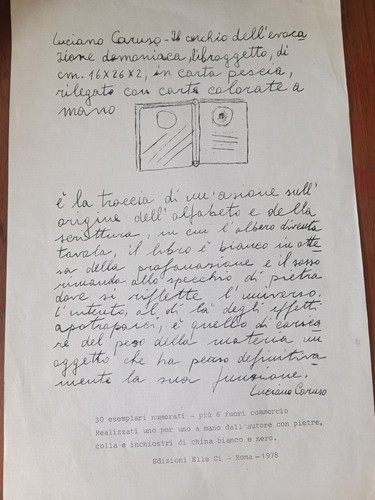 Luciano Caruso - Il cerchio dell'evoca
zione demoniaca, libroggetto, di
cm. 16x26x2, in carta pescia,
rilegato con carta colorate a
mano
è la traccia di un'azione sull'
origine dell'alfabeto e della
scrittura, in cui l'albero diventa
tavola, il libro è bianco in atte
sa della profanazione e il sasso
rimanda allo specchio di pietra
dove si riflette l'universo.
L'intento, al di là degli effetti
apotropaici, è quello di carica
re del peso della materia un
oggetto che ha perso definitiva
mente la sua funzione.
Luciano Caruso
30 esemplari numerati - più 6 fuori commercio
Realizzati uno per uno a mano dall'autore con pietre,
colle e inchiostri di china bianco e nero.
Edizioni Elle Ci - Roma - 1978